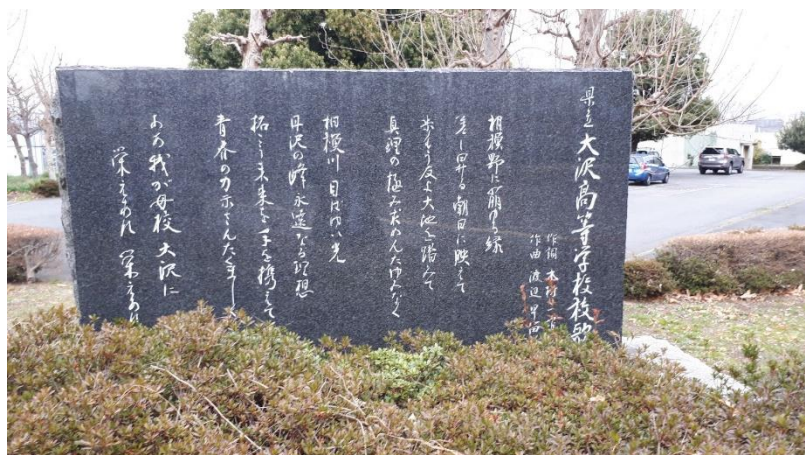 県立大沢高等学校校歌
作詞 木村
作曲 渡辺
相模野に萌ゆる緑
差し昇る朝日に映えて
歩もう友よ大地を踏みて
真理の極み求めんたゆみなく
相模川 目はゆい光
丹沢の峰永遠なる理想
拓こう未来を手を携えて
青春の力示さんたくましく
ああ我が母校 大沢に
栄えあれ 栄えあれ